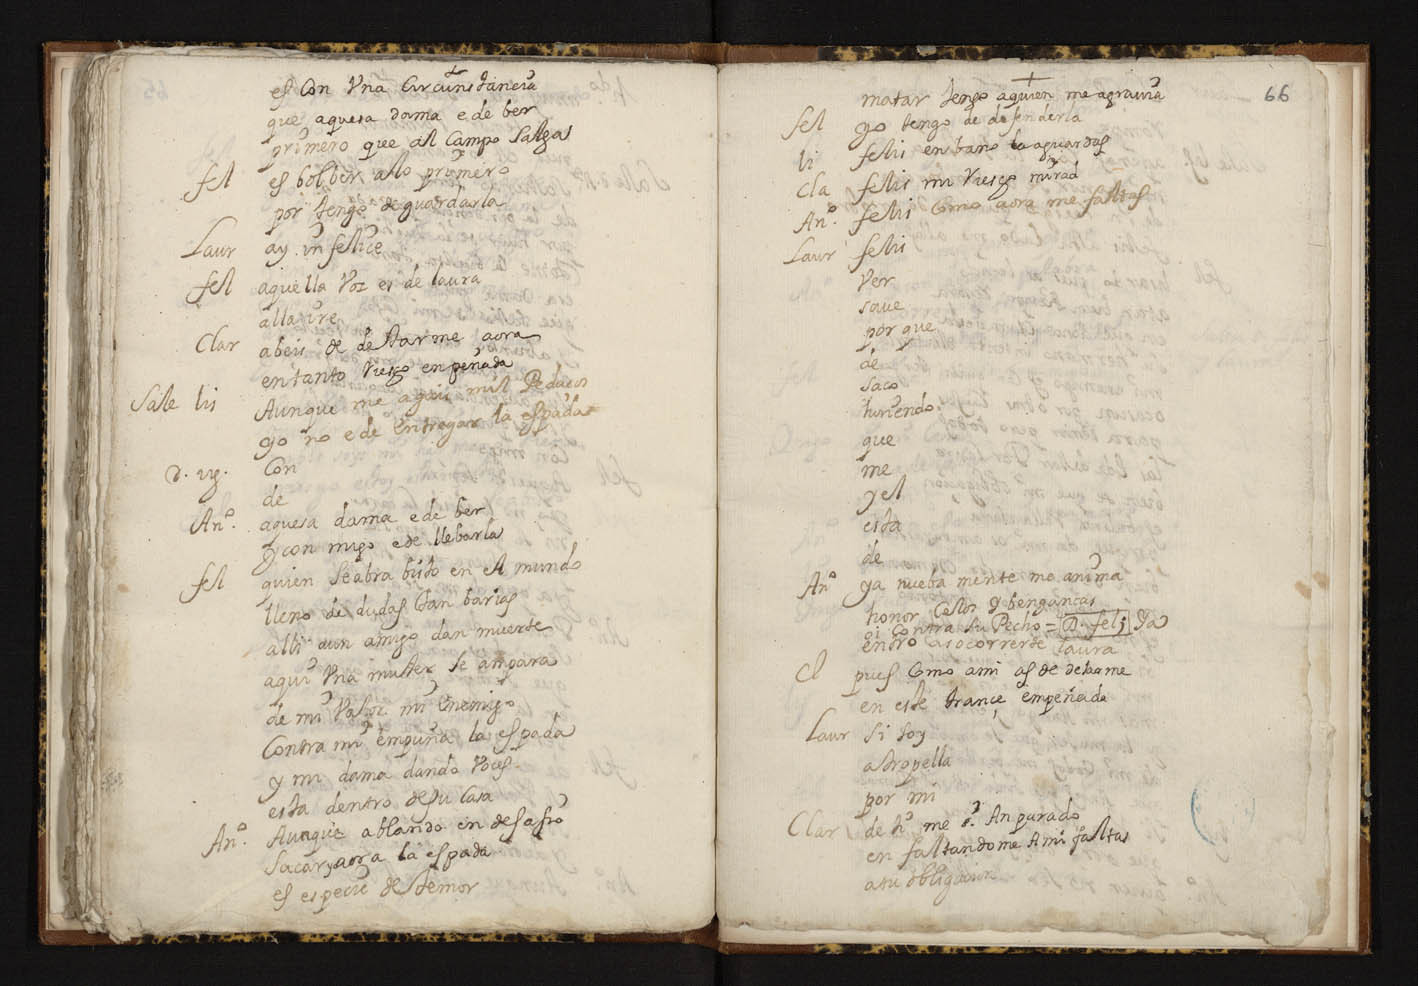 es Con Vna Circunstancia
que aquesa dama e de ber
primero que al Campo salgas
fel es bolber a lo primero
por tengo de guardarla
Laur ay infelice
fel aquella Voz es de laura
alla ire
Clar abeis de dejarme aora
en tanto riesgo enpeñada
Sale lis Aunque me agais mil Pedaços
yo no e de entregar la espada
D. Con
de
Anº. aquesa dama e de ber
y con migo e de llebarla
fel quien se abra bisto en el mundo
lleno de dudas tan barias
alli a un amigo dan muerte
aqui Vna mujer se ampara
de mi Valor mi enemigo
Contra mi empuña la espada
y mi dama dando Voces
esta dentro de su Casa
Anº. Aunque ablando en desafio
sacar aora la espada
es especie de temor
66
matar tengo a quien me agrauia
fel yo tengo de defenderla
li felis en bano la aguardas
Cla felis mi riesgo mirad
Anº. felis Como aora me faltas
Laur felis
Ver
saue
por que
de
saco
huiendo
que
me
y el
esta
de
Anº ya nueba mente me anima
honor Celos y benganças
Contra su Pecho = D. feli Ya
entro a socorrerte laura
Cl pues Como a mi as de dejarme
en este trance empeñada
Laur Si soy
atropella
por mi
Clar de me Anparado
en faltandome A mi faltas
a tu obligacion